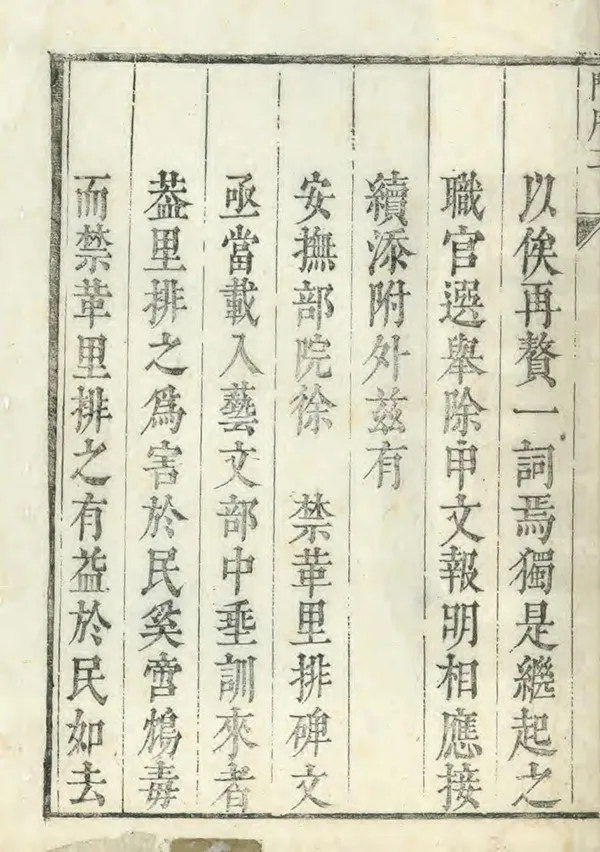 以俟再贅一詞焉獨是繼起之
職官選舉除申文報明相應接
續添附外茲有
安撫部院徐　禁革里排碑文
亟當載入藝文部中垂訓來者
葢里排之為害於民奚啻鴆毒
而禁革里排之有益於民如去